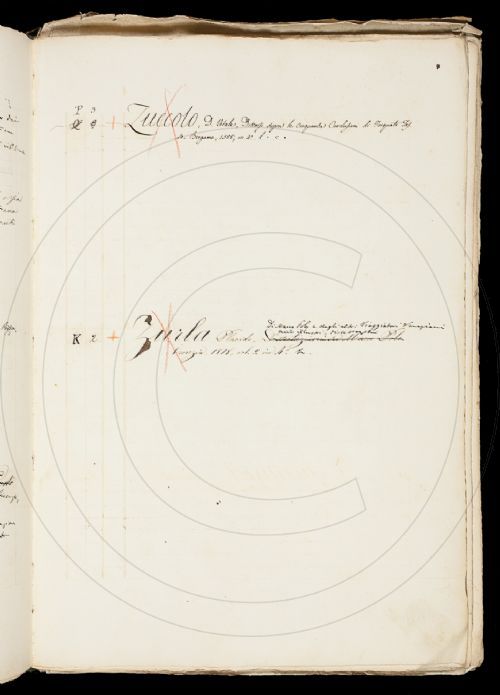 P 3
Zuccolo, D. Vitale, Discorsi sopra le cinquanta Conclusioni di Torquato Tasso
Bergamo, 1588, in 4°
K 2 + Zurla Placido,
Di Marco Polo e degli altri Viaggiatori Veneziani
più illustri, Dissertazioni
Venezia 1818, vol. 2 in 4.